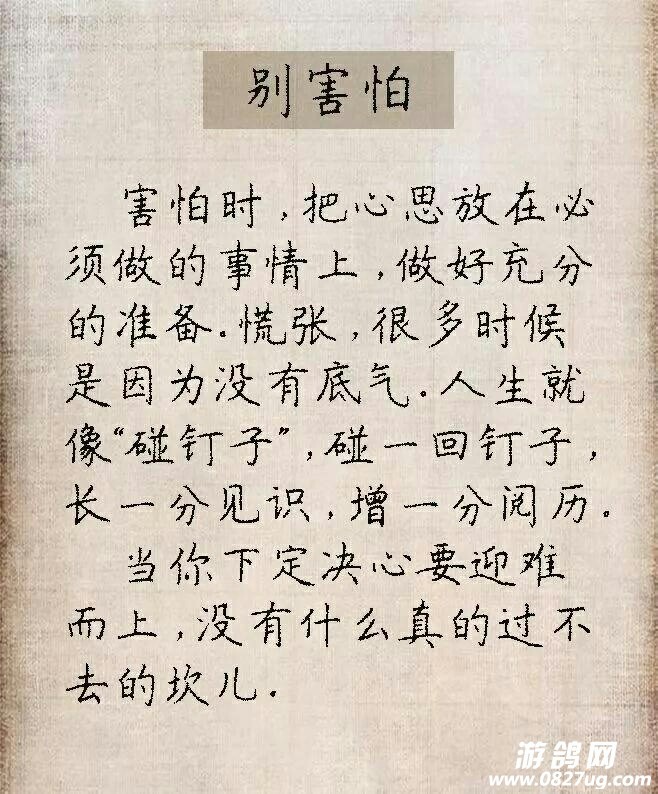 别害怕
害怕时，把心思放在必
须做的事情上，做好充分
的准备。慌张，很多时候
是因为没有底气。人生就
像“碰钉子”，碰一回钉子，
长一分见识，增一分阅历。
当你下定决心要迎难
而上，没有什么真的过不
去的坎儿.
游鸽网
www.0827ug.com